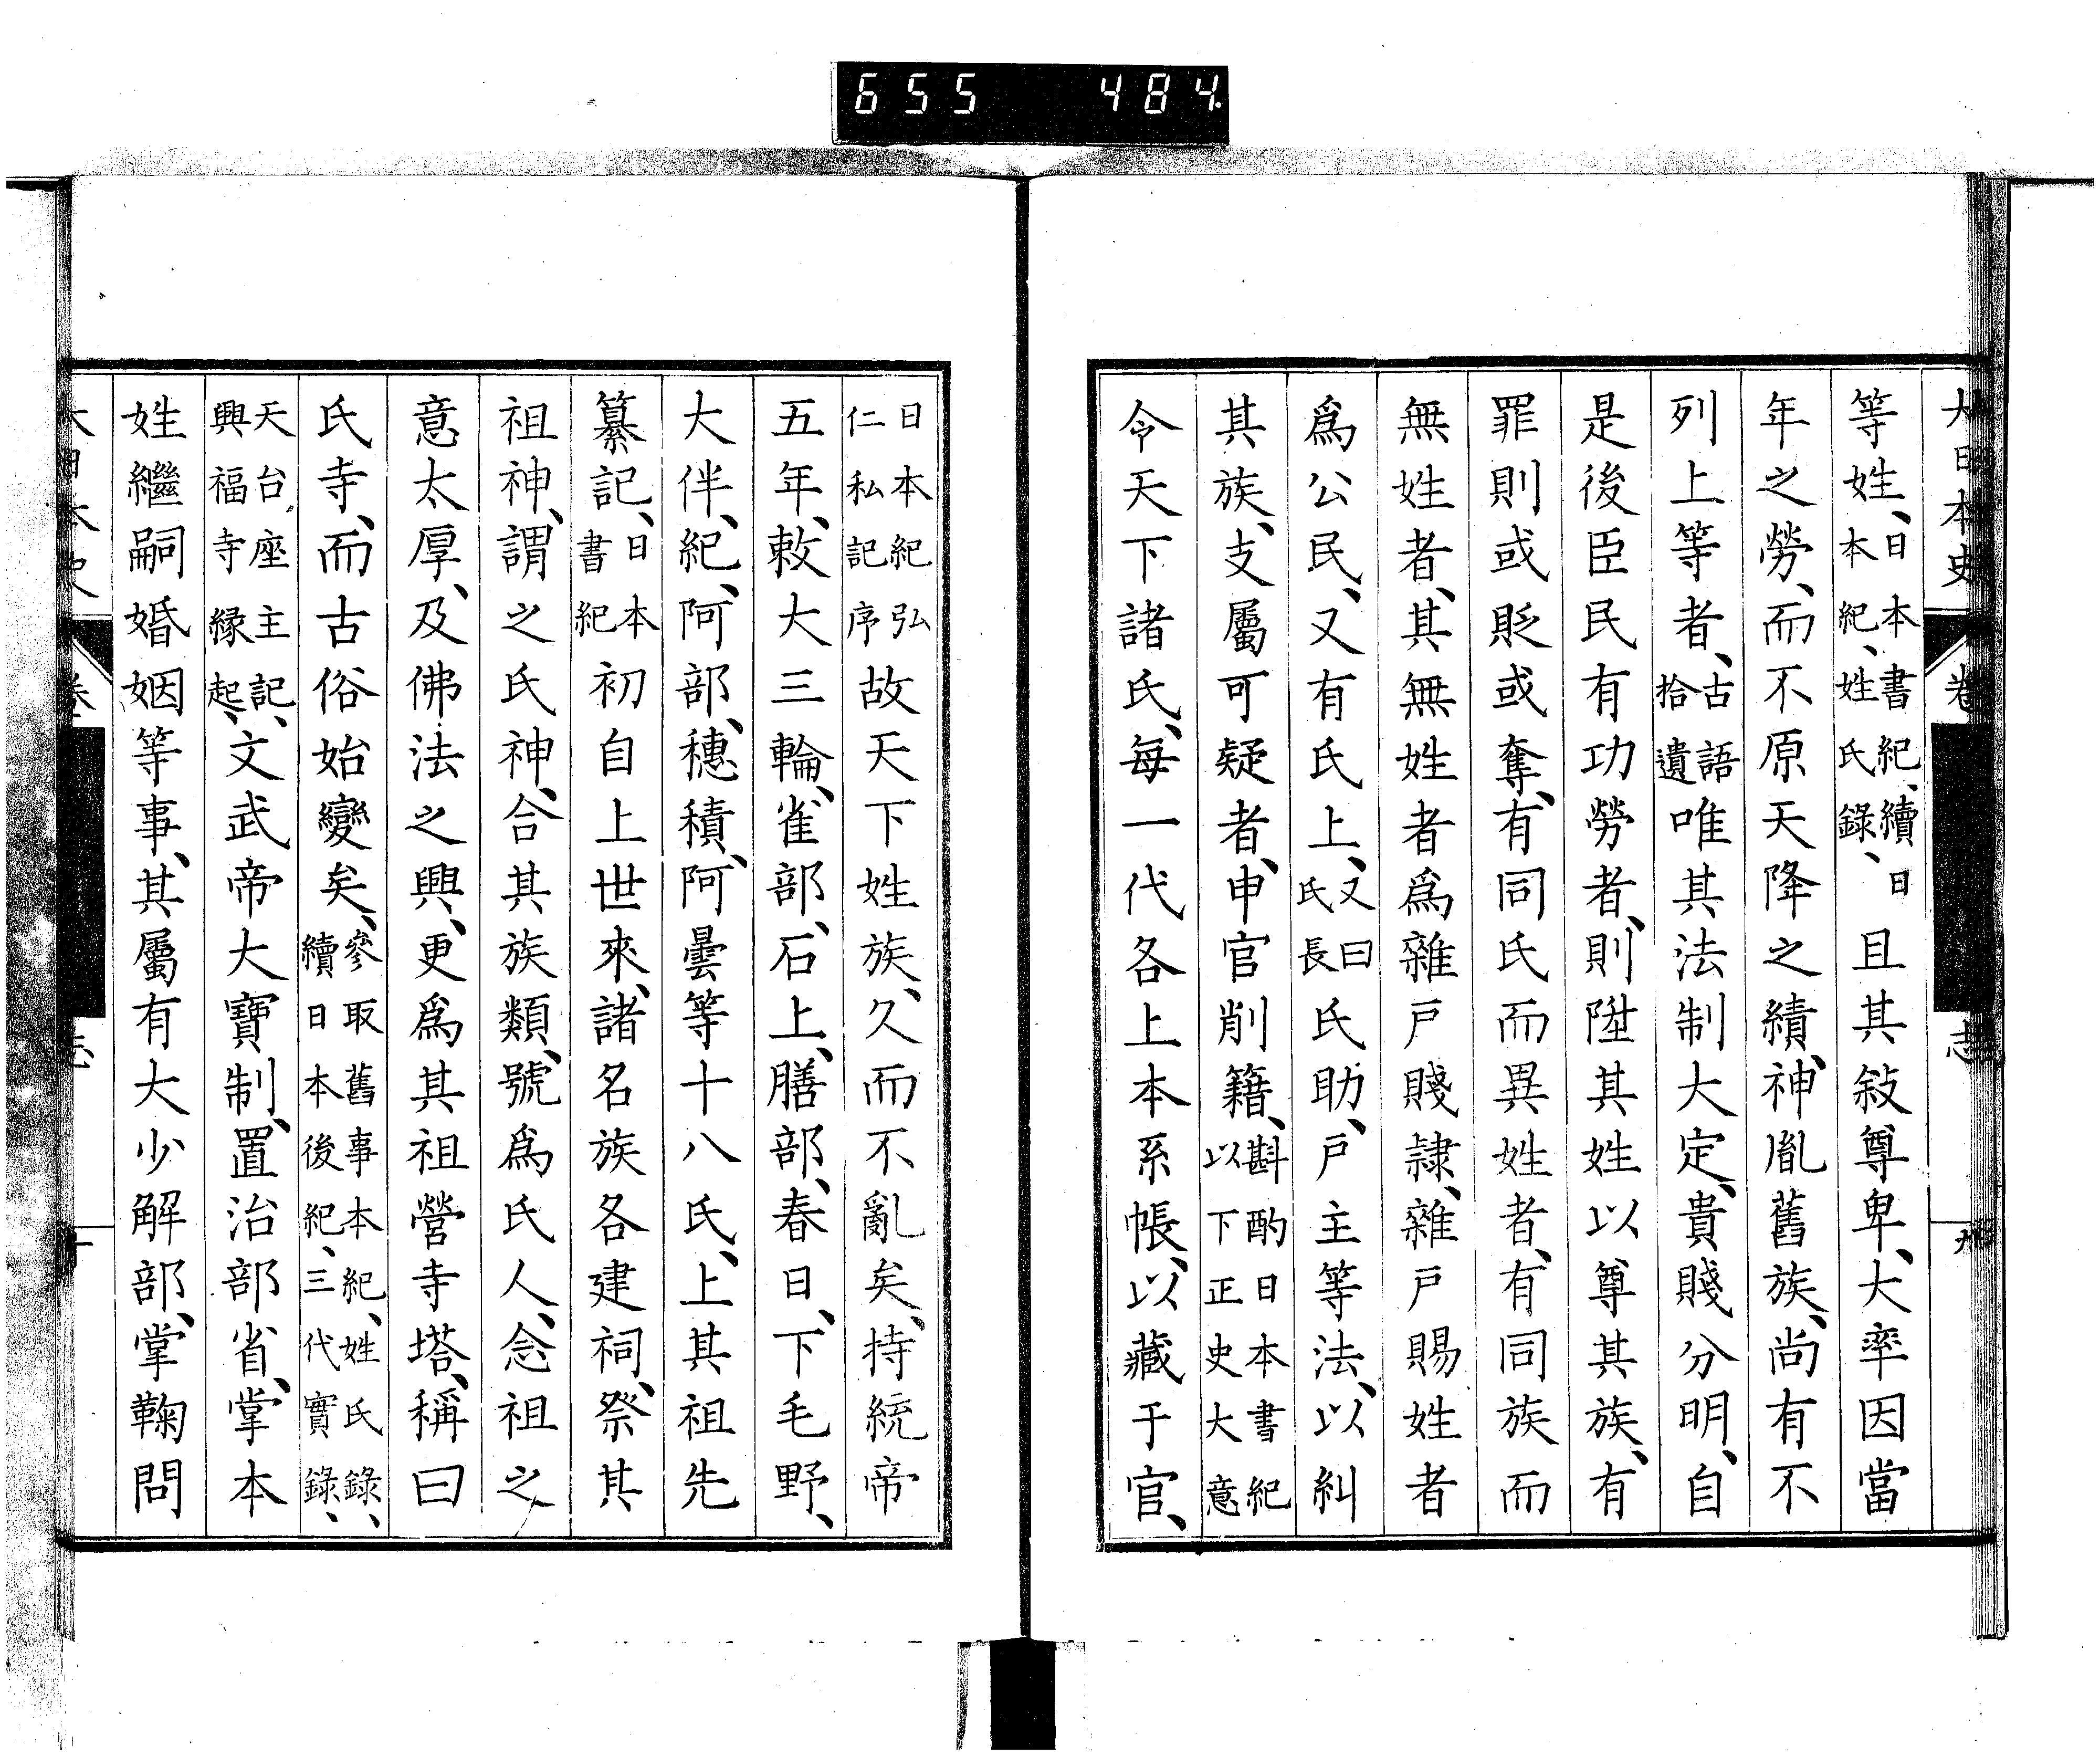 655 484
大日本史 卷 志 九
等姓、日本書紀、續日本紀、姓氏錄、且其敍尊卑、大率因當
年之勞、而不原天降之績、神胤舊族、尚有不
列上等者、古語拾遺唯其法制大定、貴賤分明、自
是後臣民有功勞者、則陞其姓以尊其族、有
罪則或貶或奪、有同氏而異姓者、有同族而
無姓者、其無姓者爲雜戶賤隷、雜戶賜姓者
爲公民、又有氏上、又曰氏長氏助、戶主等法、以糾
其族、支屬可疑者、申官削籍、斟酌日本書紀以下正史大意
令天下諸氏、每一代各上本系帳、以藏于官、
日本紀弘仁私記序故天下姓族、久而不亂矣、持統帝
五年、敕大三輪、雀部、石上、膳部、春日、下毛野、
大伴、紀、阿部、穗積、阿曇等十八氏、上其祖先
纂記、日本書紀初自上世來、諸名族各建祠、祭其
祖神、謂之氏神、合其族類、號爲氏人、念祖之
意太厚、及佛法之興、更爲其祖營寺塔、稱曰
氏寺、而古俗始變矣、參取舊事本紀、姓氏錄、續日本後紀、三代實錄、
天台座主記、興福寺緣起、文武帝大寶制、置治部省、掌本
姓繼嗣婚姻等事、其屬有大少解部、掌鞠問